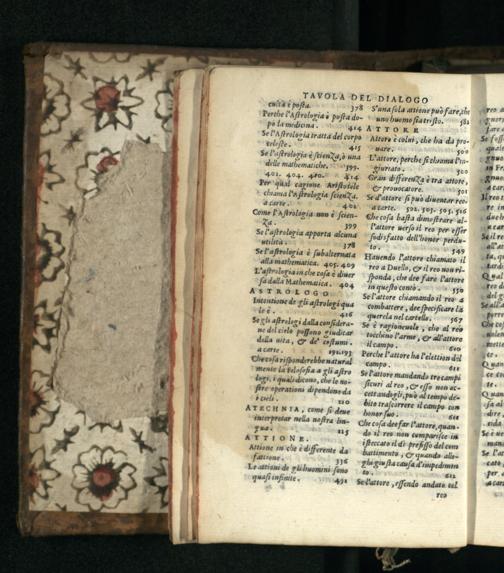 TAVOLA DEL DIALOGO
culta è posta. 378
Perche l'Astrologia è posta do-
po la medicina. 414
Se l'Astrologia tratta del corpo
celeste. 415
Se l'Astrologia è scienza, o una
delle mathematiche. 399.
401. 404. 410. 414
Per qual cagione Aristotele
chiama l'Astrologia scienza.
a carte. 402
Come l'Astrologia non è scien-
za. 399
Se l'Astrologia apporta alcuna
utilità. 378
Se l'Astrologia è subalternata
alla mathematica. 405. 409
L'astrologia in che cosa è diuer
sa dalla Mathematica. 404
ASTROLOGO
Intentione de gli astrologi qua
le è. 416
Se gli astrologi dalla considera-
ne del cielo possono giudicar
della vita, & de' costumi.
a carte. 192.193
Che cosa risponderebbe natural
mente la filosofia a gli astro
logi, i quali dicono, che le no-
stre operationi dipendono da
i cieli. 210
ATECHNIA, come si deue
interpretar nella nostra lin-
gua. 225
ATTIONE.
Attione in che è differente da
fattione. 336
Le attioni de gli huomini sono
quasi infinite. 491
S'una sola attione può fare, che
uno huomo sia tristo. 581
ATTORE
Attore è colui, che ha da pro-
uare. 500
L'attore, perche si chiama l'in-
giuriato. 300
Gran differenza è tra attore,
& prouocatore. 301
Se d'attore si può diuentar reo.
a carte. 502. 503. 505. 516
Che cosa basta dimostrare al-
l'attore uerso il reo per esser
sodisfatto dell'honor perdu-
to. 549
Hauendo l'attore chiamato il
reo a Duello, & il reo non ri-
sponda, che dee fare l'attore
in questo conto. 550
Se l'attore chiamando il reo a
combattere, dee specificare la
querela nel cartello. 567
Se è ragioneuole, che al reo
tocchino l'arme, & all'attore
il campo. 610
Perche l'attore ha l'elettion del
campo. 611
Se l'attore mandando tre campi
sicuri al reo, & esso non ac-
cettandogli, può al tempo de-
bito trascorrere il campo con
honor suo. 611
Che cosa dee far l'attore, quan-
do il reo non comparisce in
isteccato il dì prefisso del com
battimento, & quando alle-
ghi giusta causa d'impedimen
to. 612
Se l'attore, essendo andato col
reo